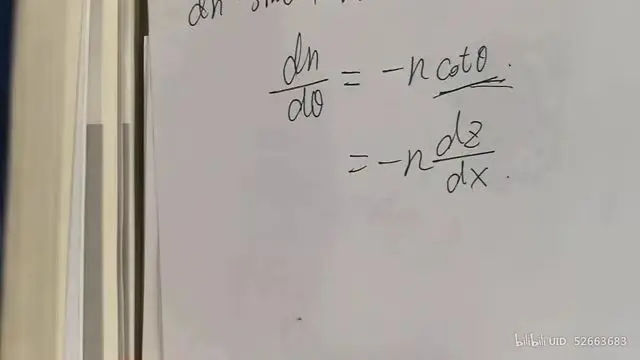 dn sin
dn/dθ = -n cotθ.
= -n dz/dx.
bilibili UID 52663683